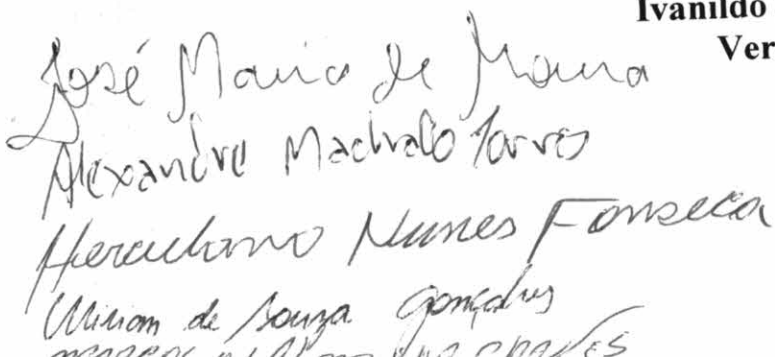 Ivanildo
Ver
José Maria de Moura
Alexandre Machado Torres
Herculano Nunes Fonseca
Miriam de Souza Gonçalves
CHAVES